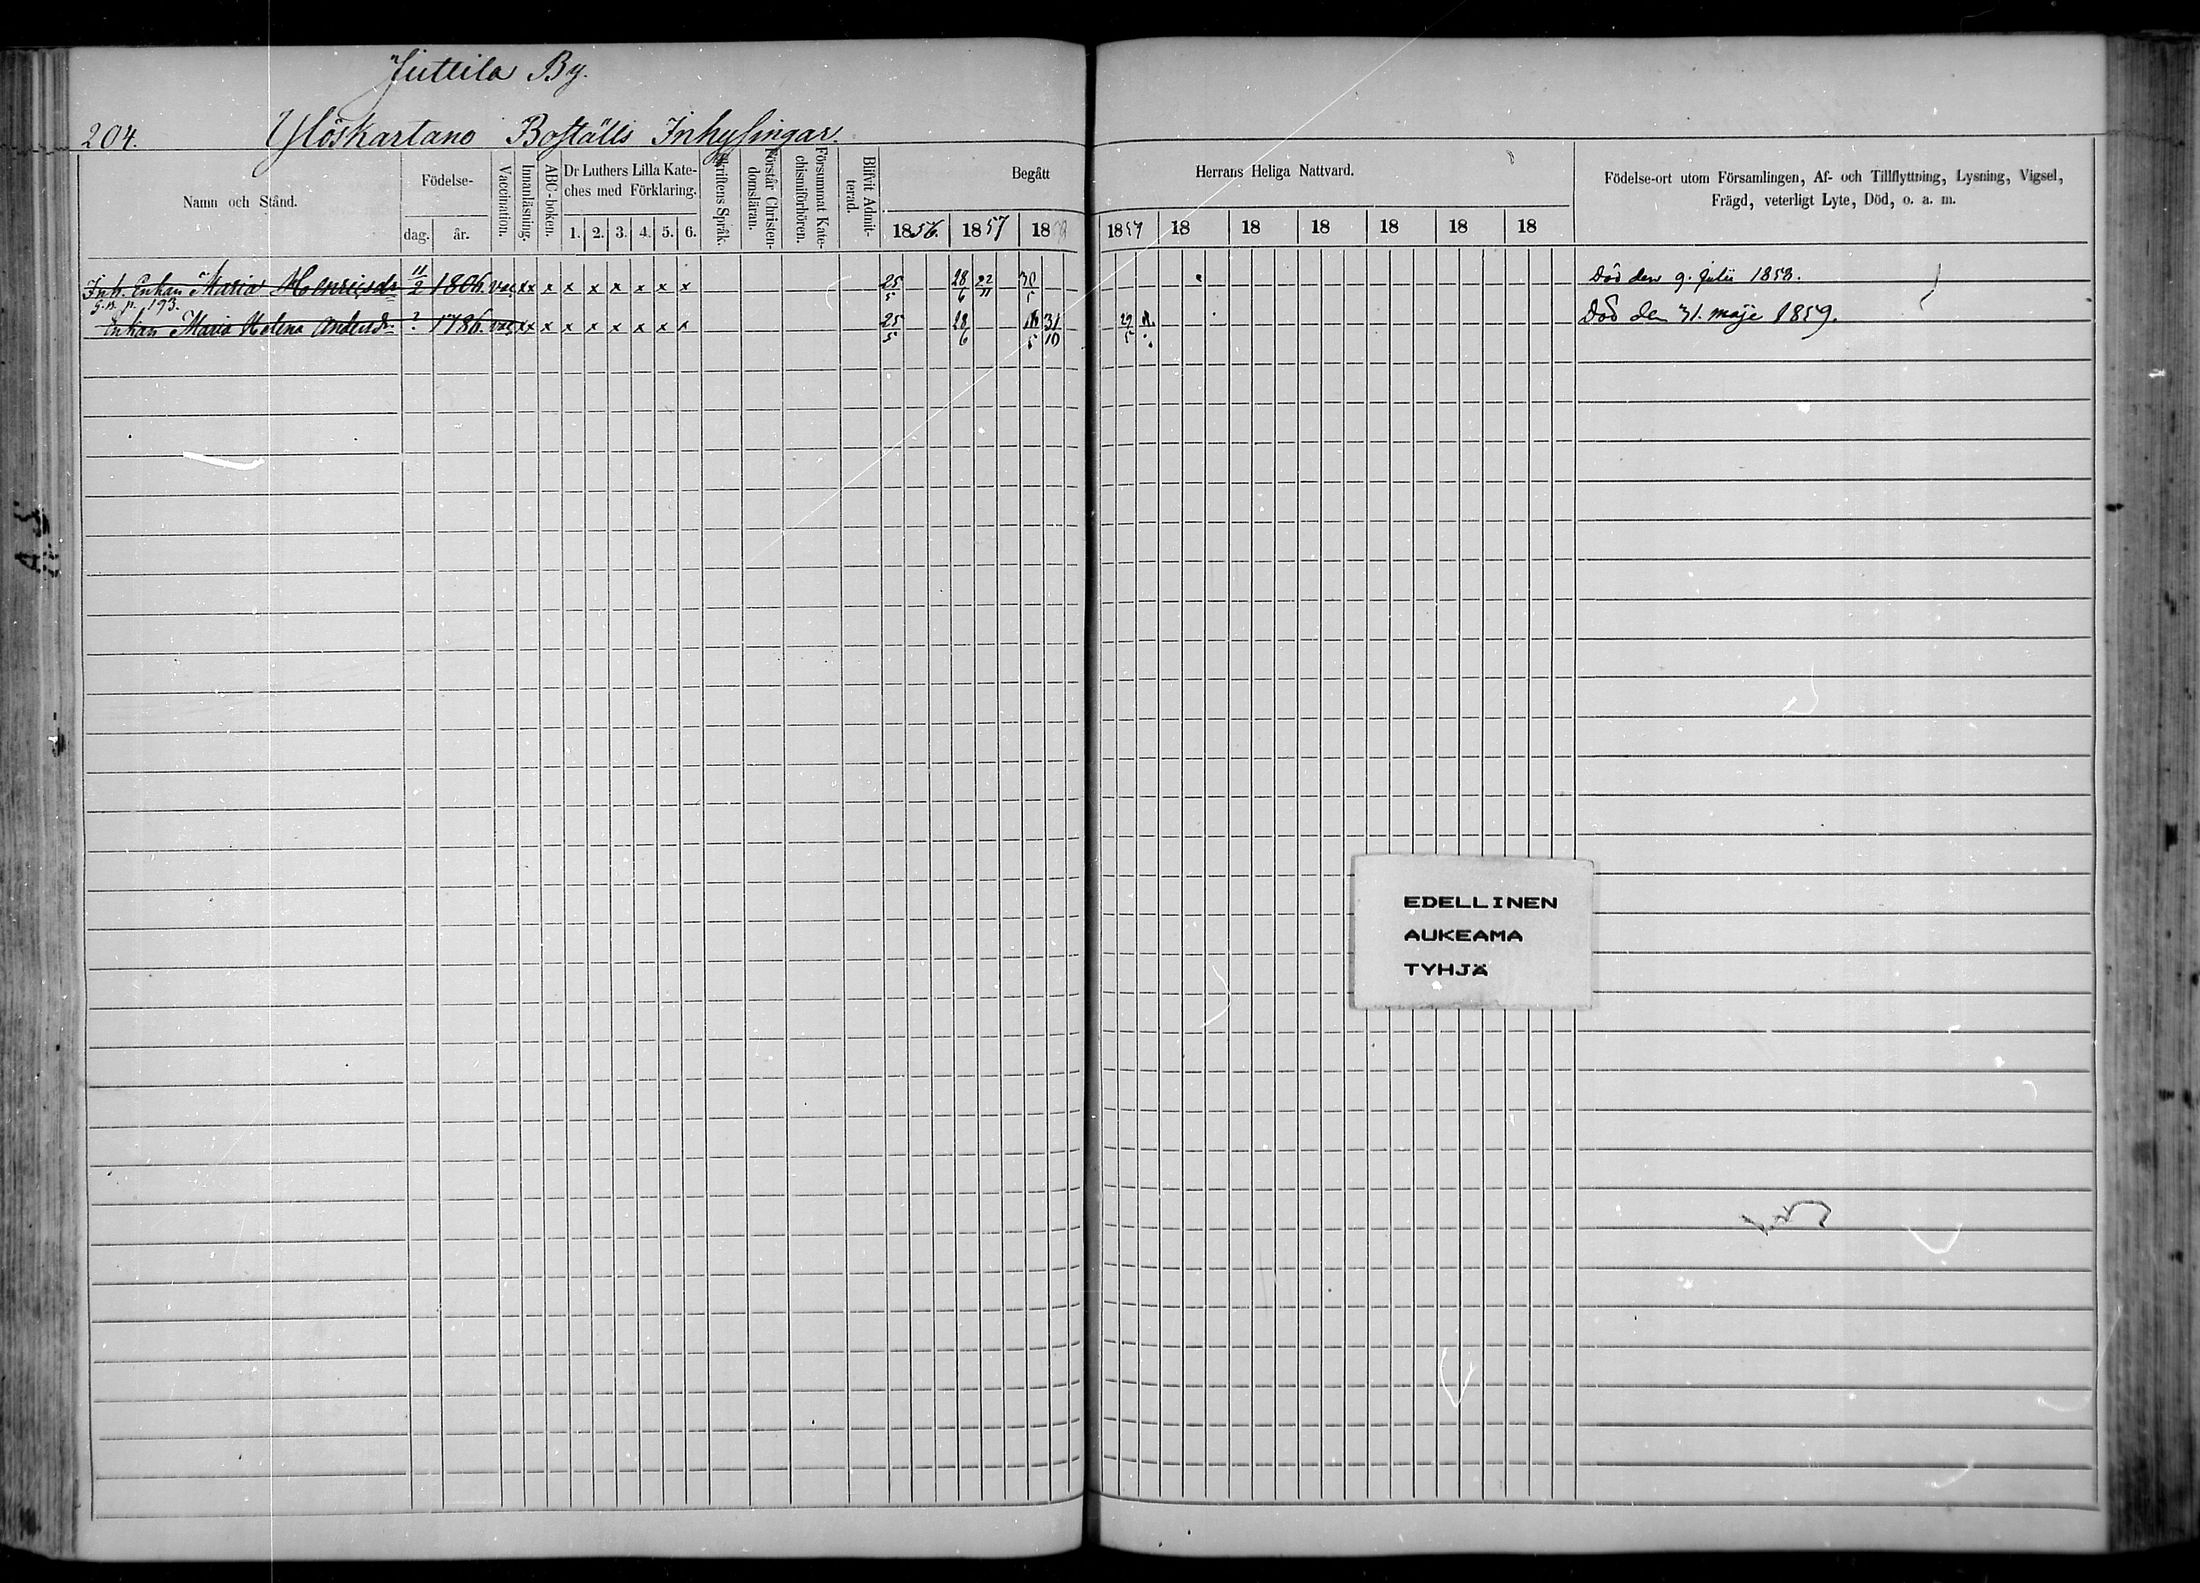 Juttila By.
204. Ylöskartano Boställs Inhysingar.
Namn och Stånd.
Födelse-
dag. år.
Vaccination.
Innanläsning.
ABC-boken.
Dr Luthers Lilla Kate-
ches med Förklaring.
1. 2. 3. 4. 5. 6.
Skriftens Språk.
Förstår Christen-
domsläran.
Försummat Kate-
chismiförhören.
Blifvit Admit-
terad.
Begått Herrans Heliga Nattvard.
1856. 1857 18 1859 18 18 18 18 18 18
Födelse-ort utom Församlingen, Af- och Tillflyttning, Lysning, Vigsel,
Frägd, veterligt Lyte, Död, o. a. m.
Inh. Enkan Maria Henriksdr 11/2 1806. vac x x x x x x x x x 25/5 28/6 22/11 30/5 Död den 9. Julii 1858.
g.n. p. 193.
Enkan Maria Helena Andersdr. ? 1786. vac x x x x x x x x x 25/5 28/6 31/10 29/5 Död den 31. maje 1859.
EDELLINEN
AUKEAMA
TYHJÄ